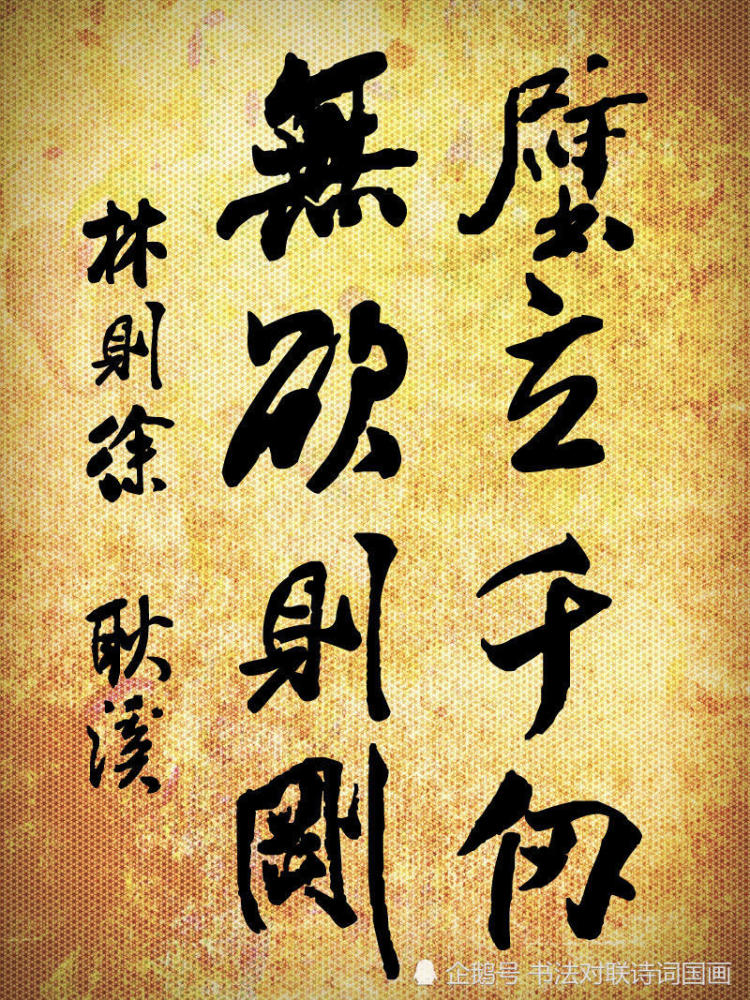 壁立千仞
無欲則剛
林則徐 耿溪
企鹅号 书法对联诗词国画